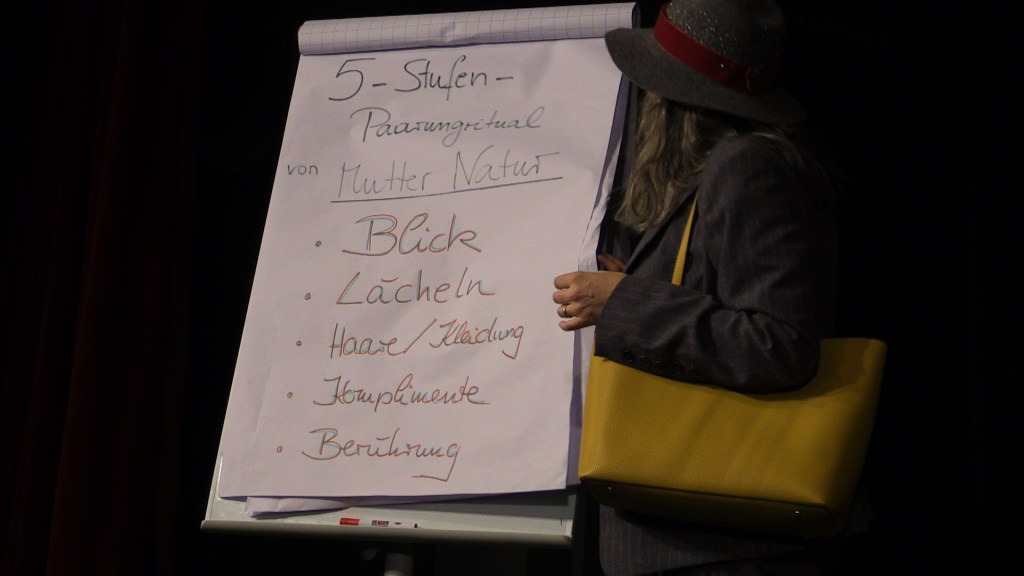 5-Stufen-
Paarungritual
von Mutter Natur
• Blick
• Lächeln
• Haare/Kleidung
• Komplimente
• Berührung